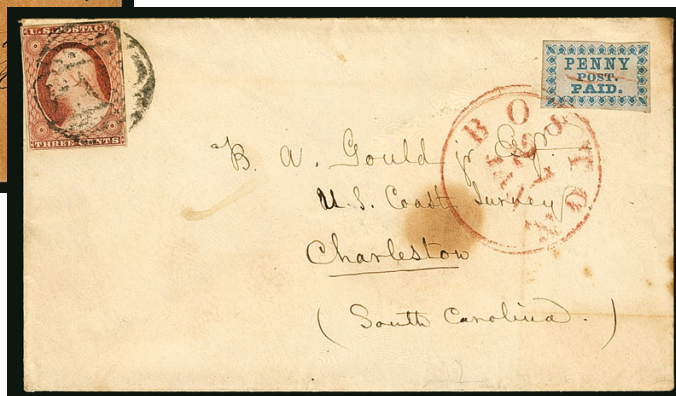 U.S. POSTAGE
THREE CENTS
PENNY
POST.
PAID.
BOSTON
B. A. Gould jr Esqr.
U.S. Coast Survey
Charleston
(South Carolina.)